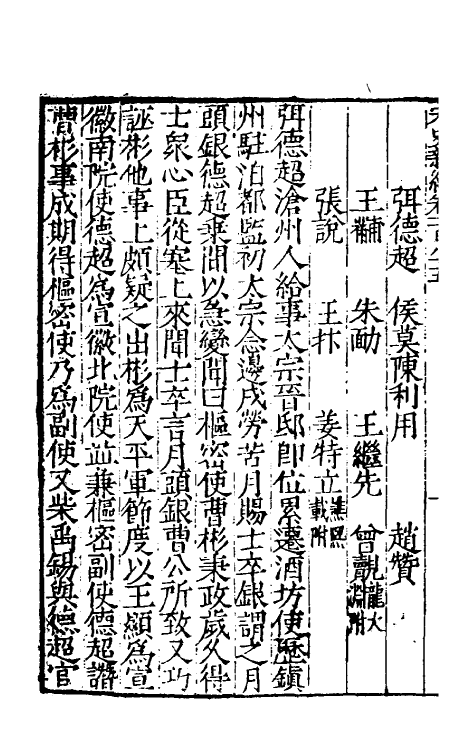 弭德超　侯莫陳利用　趙贊
王黼　朱勔　王繼先　曾覿龍大淵附
張說　王抃　姜特立譙熙載附
弭德超滄州人給事太宗晉邸即位累遷酒坊使歷鎮
州駐泊都監初太宗念邊戍勞苦月賜士卒銀謂之月
頭銀德超乗間以急變聞曰樞密使曹彬秉政歲久得
士衆心臣從塞上來聞士卒言月頭銀曹公所致又巧
誣彬他事上頗疑之出彬爲天平軍節度以王顯爲宣
徽南院使德超爲宣徽北院使並兼樞密副使德超譖
曹彬事成期得樞密使乃爲副使又柴禹錫與德超官